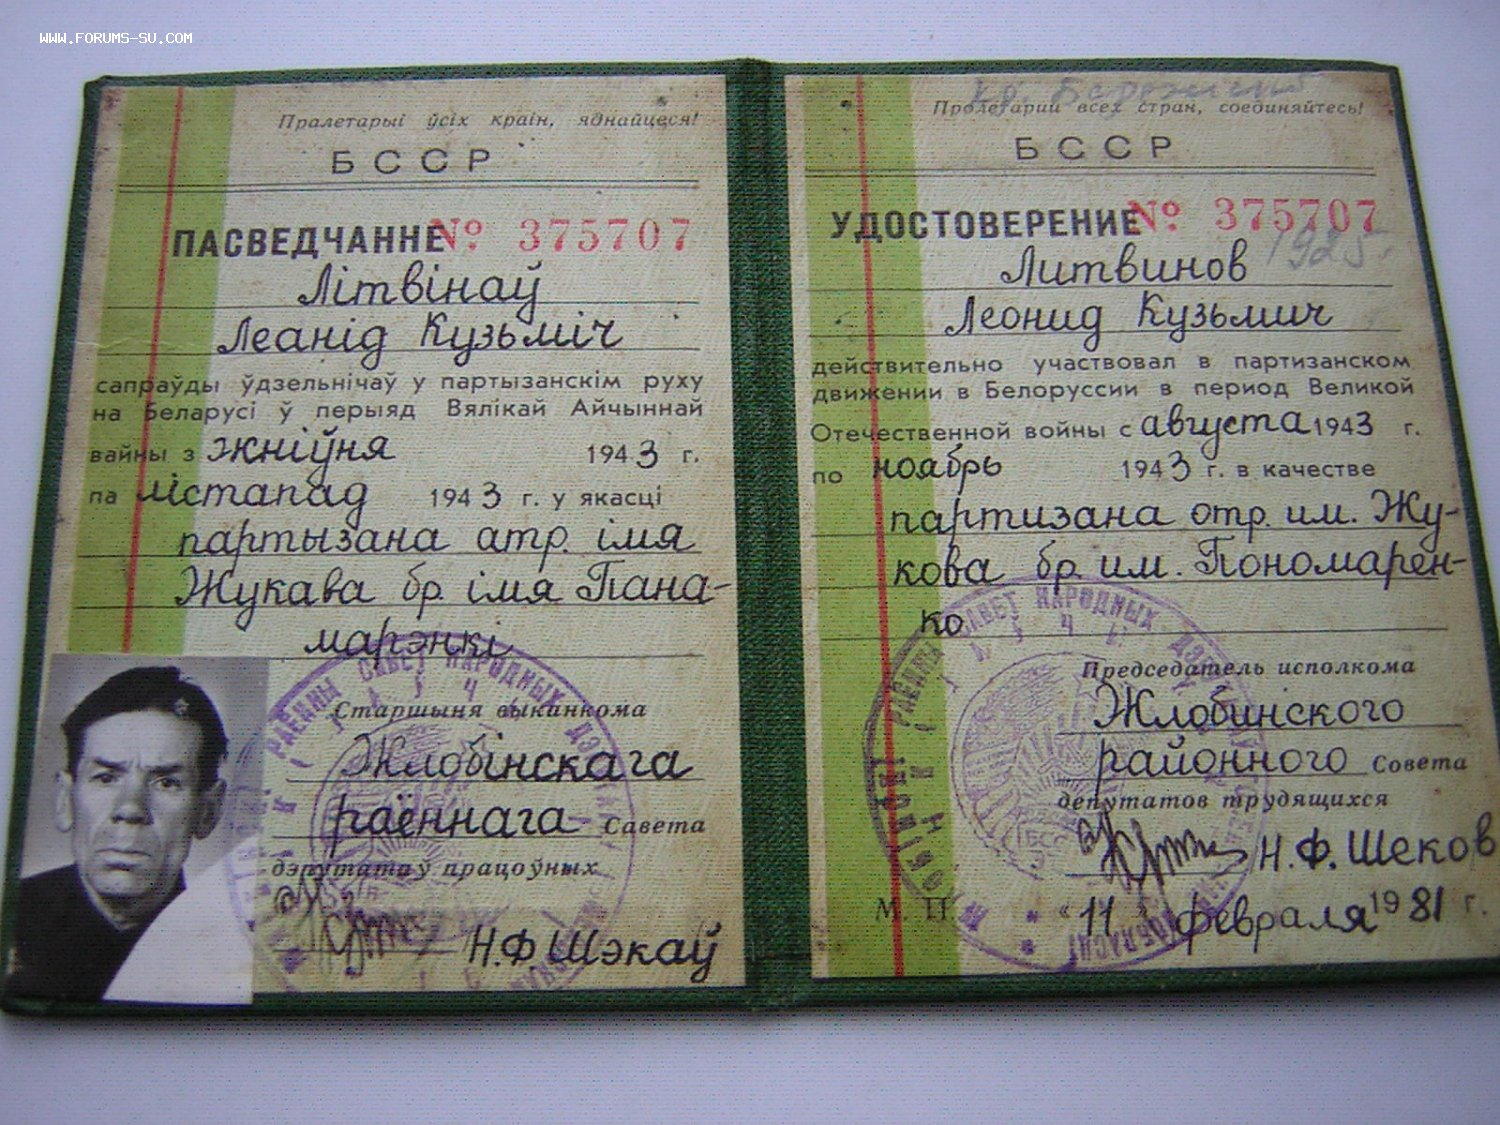 WWW.FORUMS-SU.COM
Пралетарыі ўсіх краін, яднайцеся!
БССР
ПАСВЕДЧАННЕ № 375707
Літвінаў
Леанід Кузьміч
сапраўды ўдзельнічаў у партызанскім руху
на Беларусі ў перыяд Вялікай Айчыннай
вайны з жніўня 1943 г.
па лістапад 1943 г. у якасці
партызана атр. імя
Жукава бр. імя Пана-
марэнкі
Старшыня выканкома
Жлобінскага
раённага Савета
дэпутатаў працоўных
Н.Ф Шэкаў
Пролетарии всех стран, соединяйтесь!
БССР
УДОСТОВЕРЕНИЕ № 375707
1925г.
Литвинов
Леонид Кузьмич
действительно участвовал в партизанском
движении в Белоруссии в период Великой
Отечественной войны с августа 1943 г.
по ноябрь 1943 г. в качестве
партизана отр. им. Жу-
кова бр. им. Пономарен-
ко
Председатель исполкома
Жлобинского
районного Совета
депутатов трудящихся
Н.Ф. Шеков
М. П. «11» февраля 1981 г.